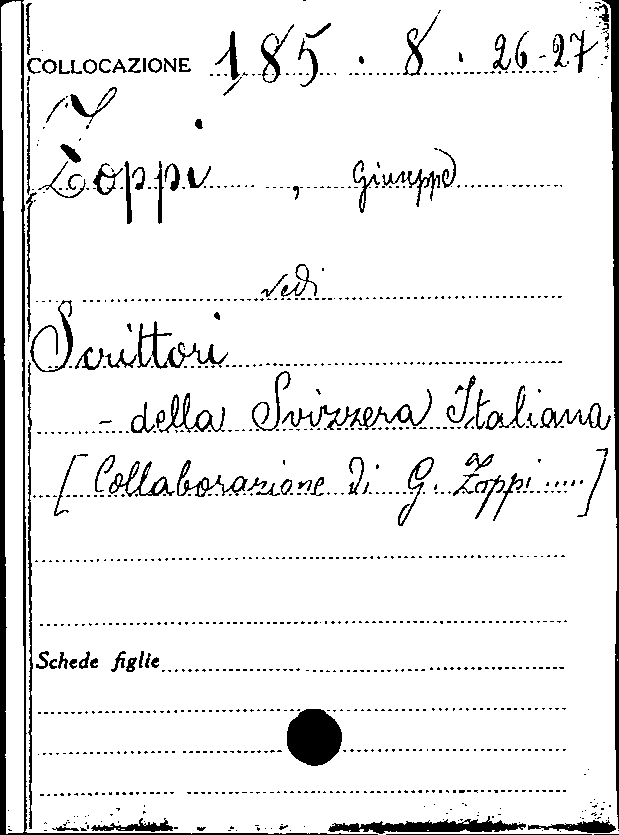 COLLOCAZIONE 185.8.26-27
Zoppi, Giuseppe
vedi
Scrittori
- della Svizzera Italiana
[Collaborazione di G. Zoppi.....]
Schede figlie